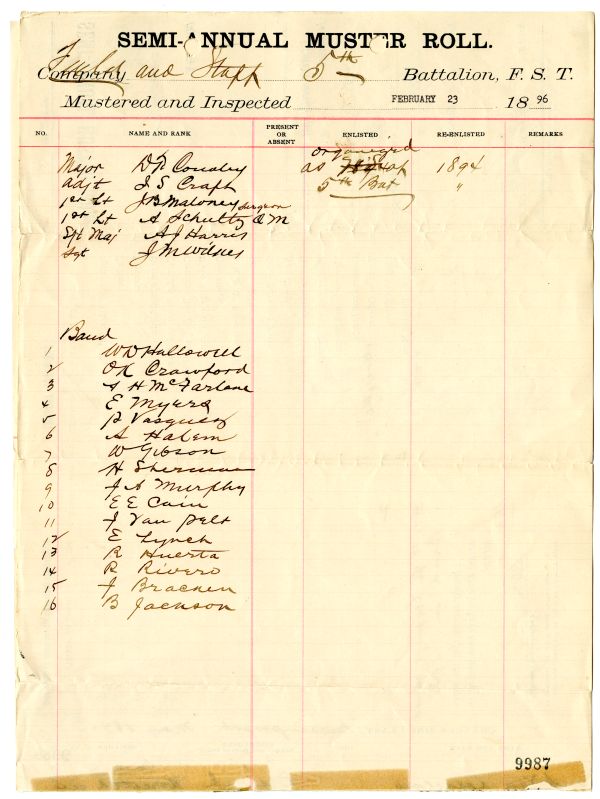 SEMI-ANNUAL MUSTER ROLL.
Company Field and Staff 5th Battalion, F. S. T.
Mustered and Inspected FEBRUARY 23 1896
NO. NAME AND RANK PRESENT OR ABSENT ENLISTED RE-ENLISTED REMARKS
organized
Major D P as 1894
Adjt J S Craft 5th Bat "
1st Lt J B Maloney Surgeon
1st Lt A Schultz Q M
Sgt Maj A J Harris
Sgt J M
Band
1 W D Hallowell
2 O K Crawford
3 A H McFarlane
4 E Myers
5 P Vasquez
6 A Halem
7 W Gibson
8 H Sherman
9 J A Murphy
10 E E Cain
11 J Van Pelt
12 E Lynch
13 R Huerta
14 R Rivero
15 J Bracken
16 B Jackson
9987